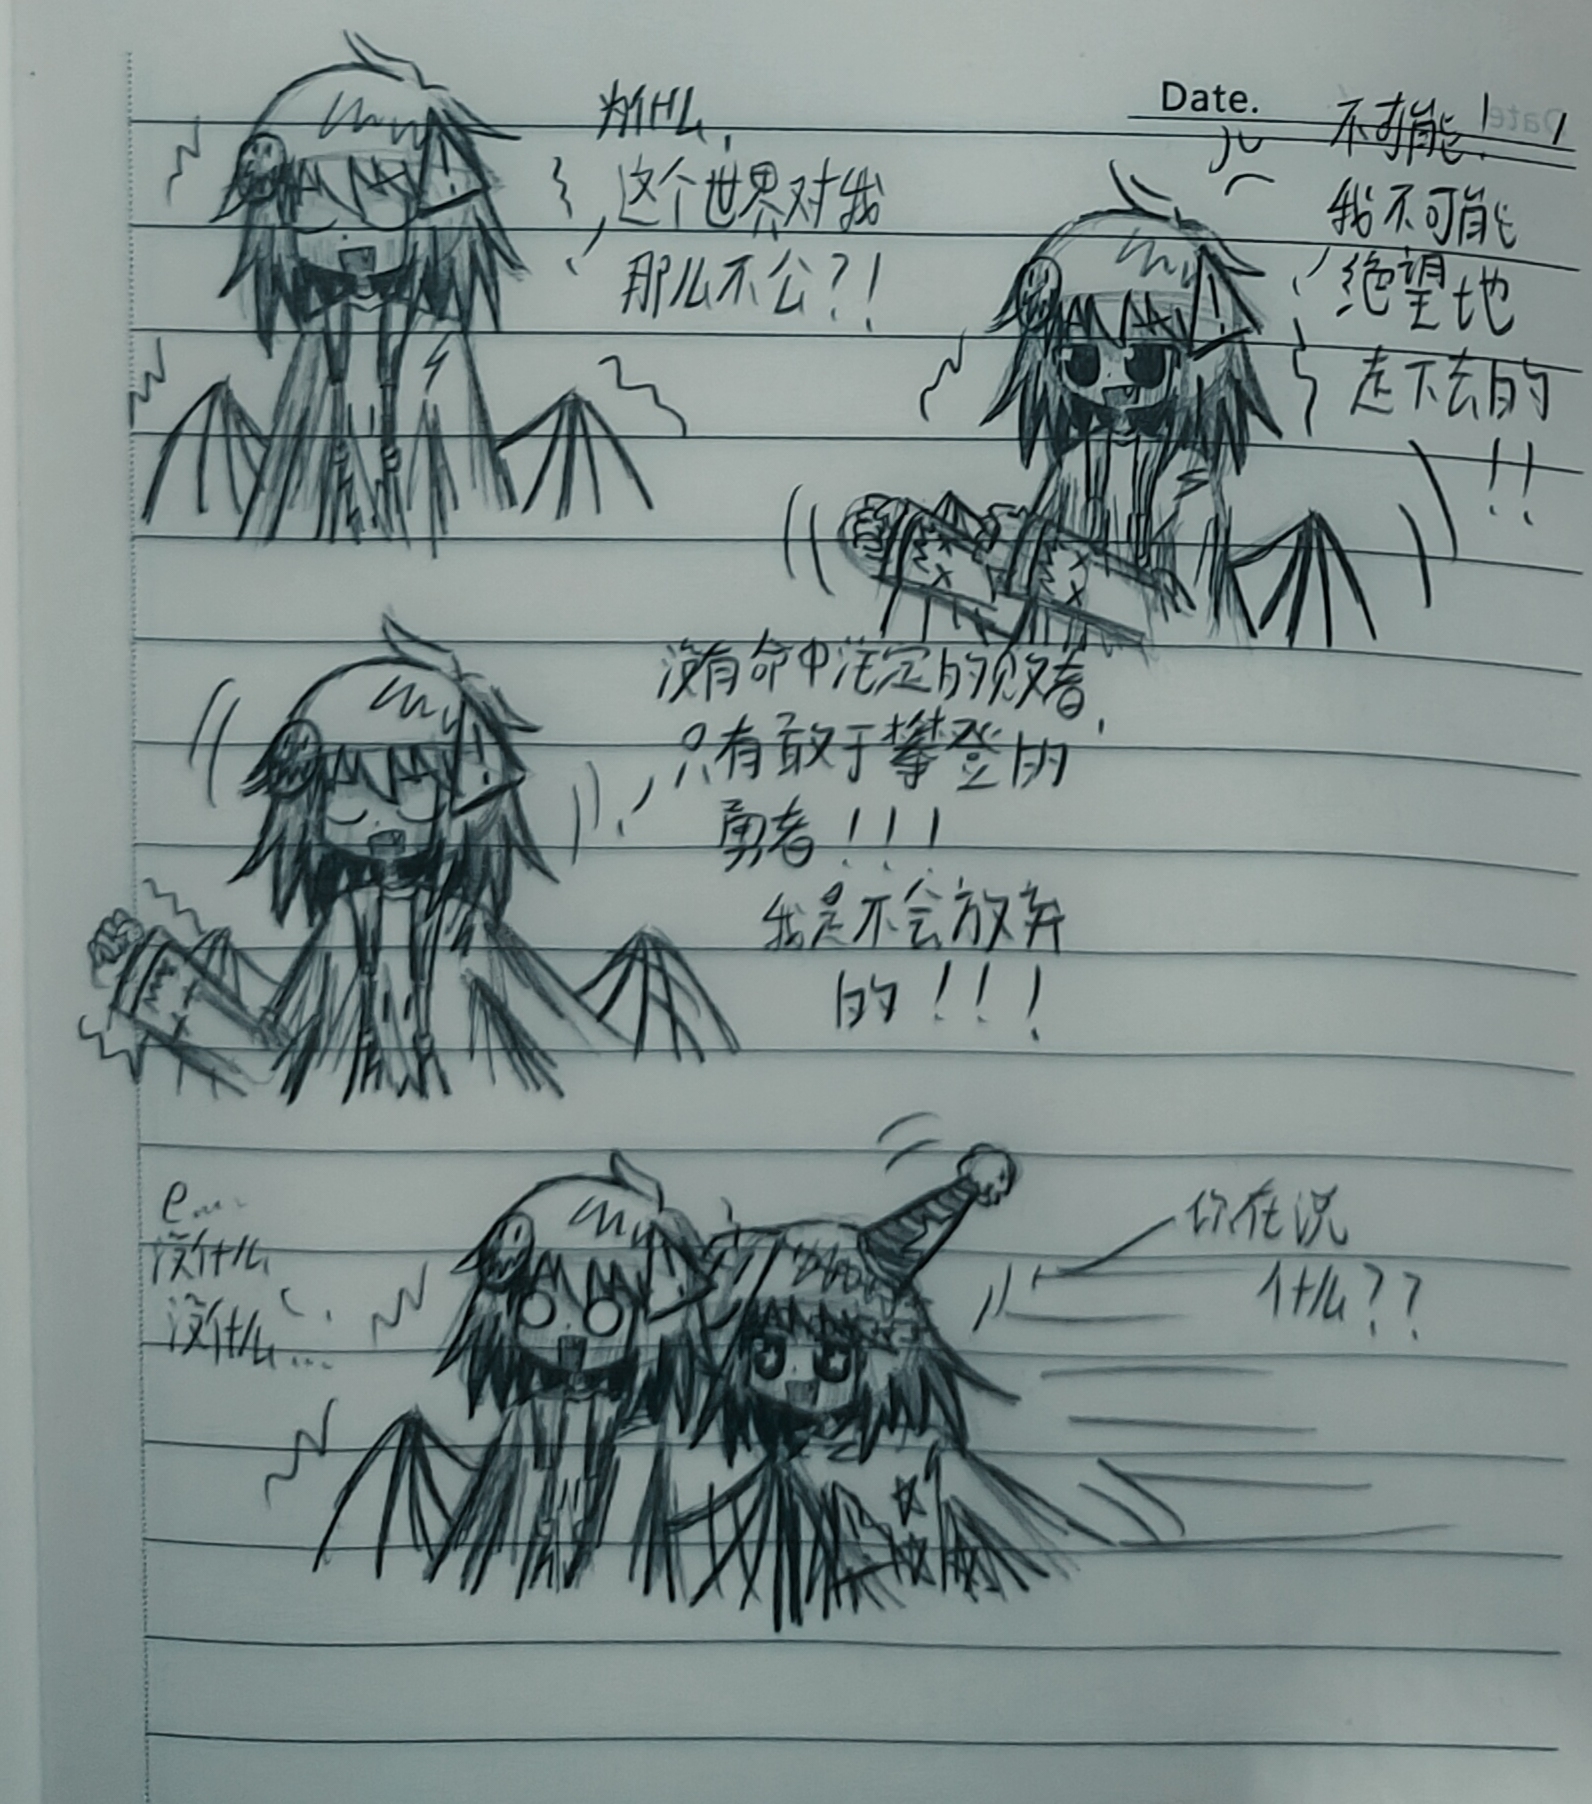 为什么,
这个世界对我
那么不公?!
Date.
不可能!
我不可能
绝望地
走下去的
!!
没有命中注定的败者,
只有敢于攀登的
勇者!!!
我是不会放弃
的!!!
e......
没什么
没什么...
你在说
什么??